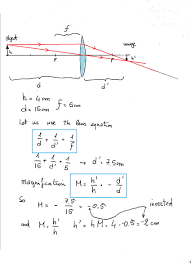 f
object
image
h
F
F
h'
d
d'
h = 4 cm
d = 15 cm f = 5 cm
Let us use the lens equation
1/d + 1/d' = 1/f
1/15 + 1/d' = 1/5 → d' = 7.5 cm
Magnification M = h'/h = - d'/d
So M = - 7.5/15 = -0.5
inverted
and M = h'/h h' = h M = 4 · -0.5 = -2 cm